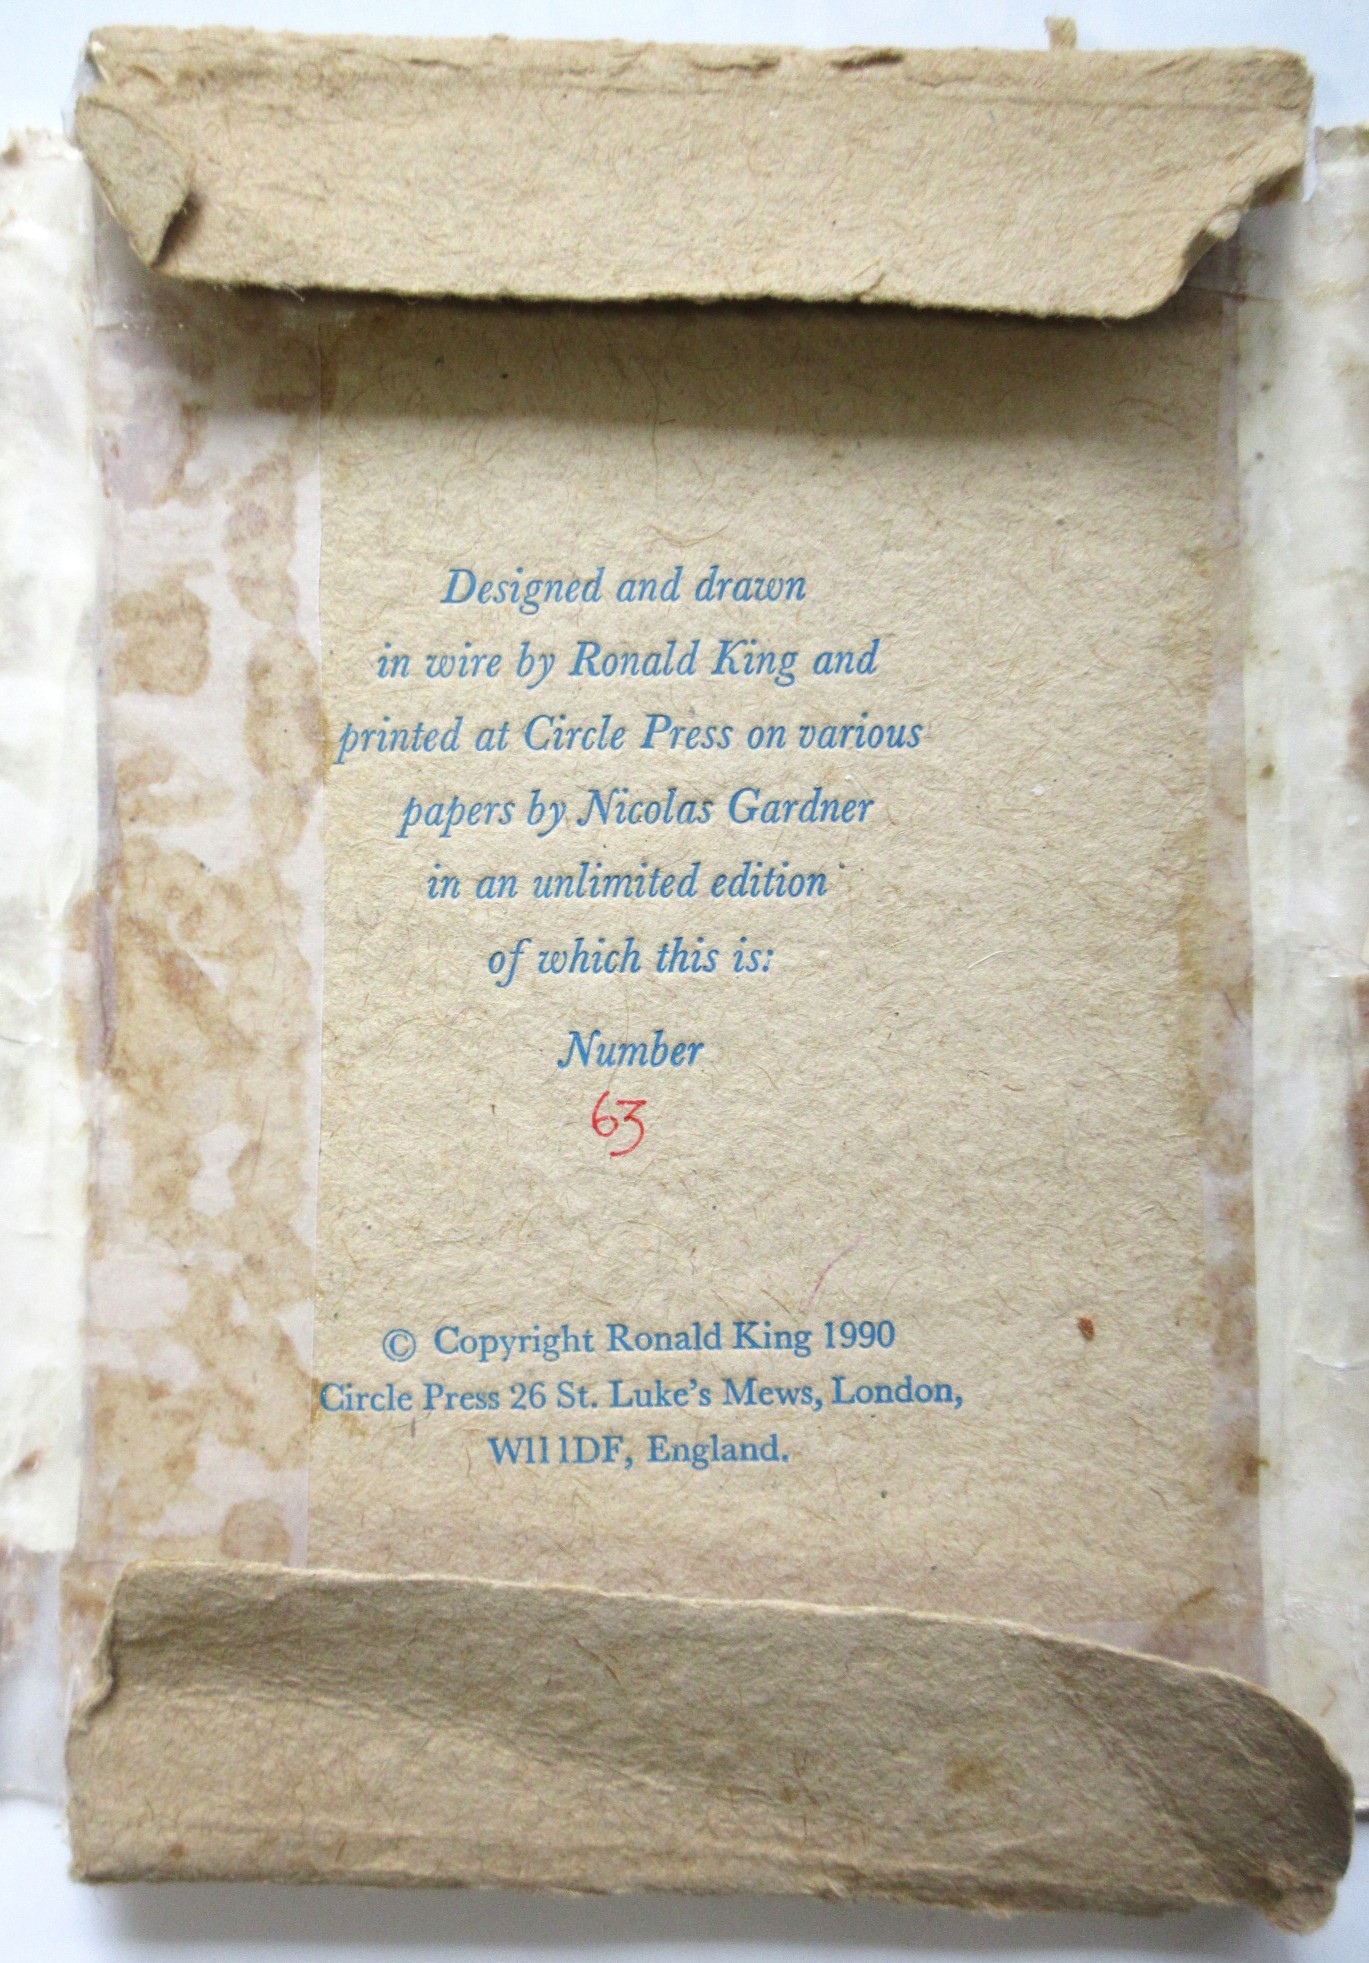 Designed and drawn
in wire by Ronald King and
printed at Circle Press on various
papers by Nicolas Gardner
in an unlimited edition
of which this is:
Number
63
© Copyright Ronald King 1990
Circle Press 26 St. Luke's Mews, London,
W11 1DF, England.